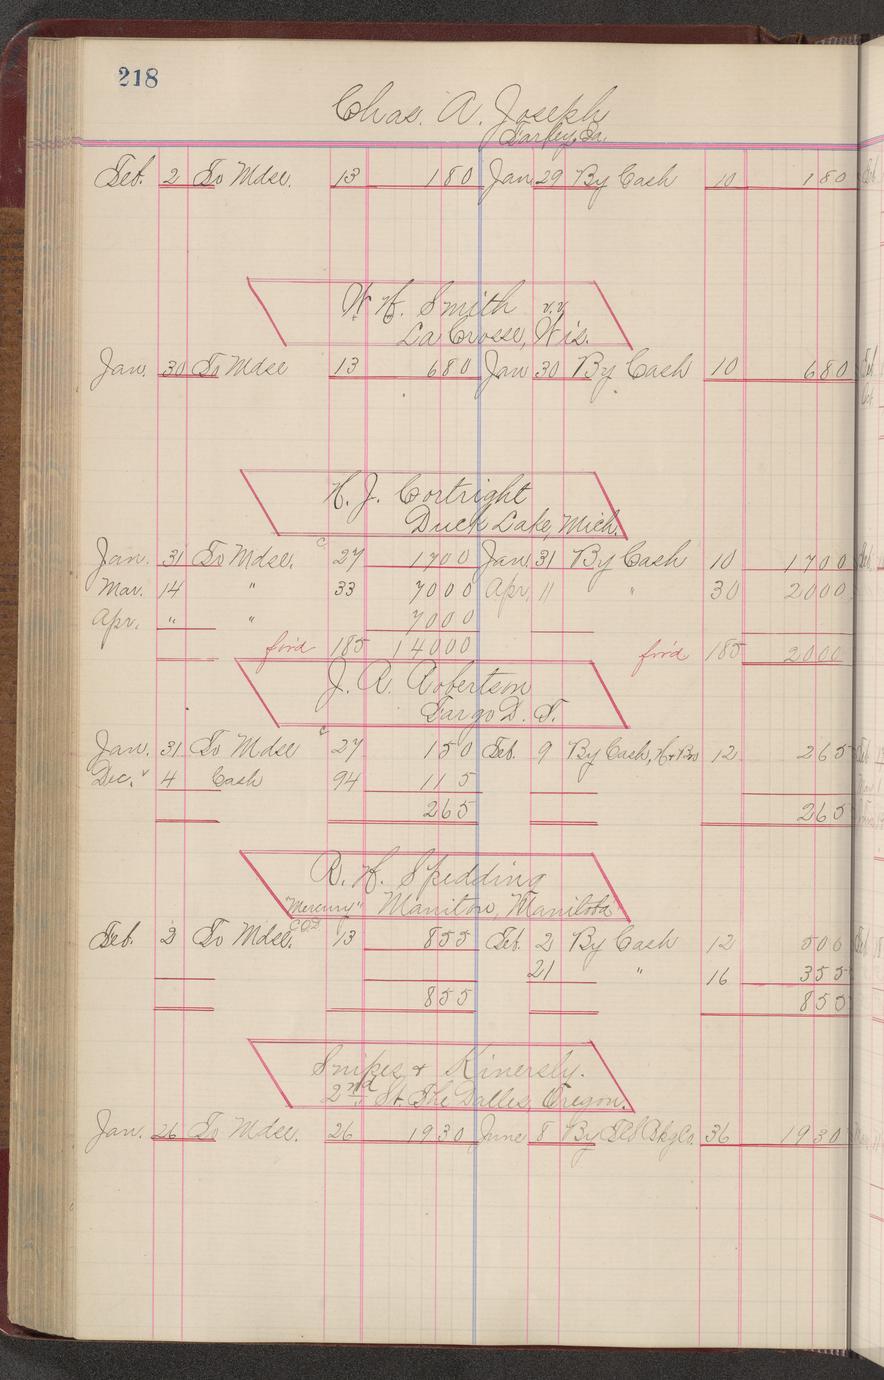 218
Chas. A. Joseph
Feb. 2 To Mdse. 13 180 Jan. 29 By Cash 10 180
W. H. Smith
La Crosse, Wis.
Jan. 30 To Mdse 13 680 Jan 30 By Cash 10 680
H. J. Cortright
Duck Lake, Mich.
Jan. 31 To Mdse. c 27 1700 Jan. 31 By Cash 10 1700
Mar. 14 " 33 7000 Apr. 11 " 30 2000
Apr. " " 7000
for'd 185 14000 for'd 185 2000
J. R. Robertson
Fargo D. T.
Jan. 31 To Mdse c 27 150 Feb. 9 By Cash, 12 265
Dec. 4 Cash 94 115
265 265
R. H. Spedding
"Mercury" Manitou, Manitoba
C.O.D.
Feb. 2 To Mdse. 13 855 Feb. 2 By Cash 12 500
21 " 16 355
855 855
Snipes & Kinersly.
2nd St. The Dalles, Oregon.
Jan. 26 To Mdse. 26 1930 June 8 By Bkg Co. 36 1930